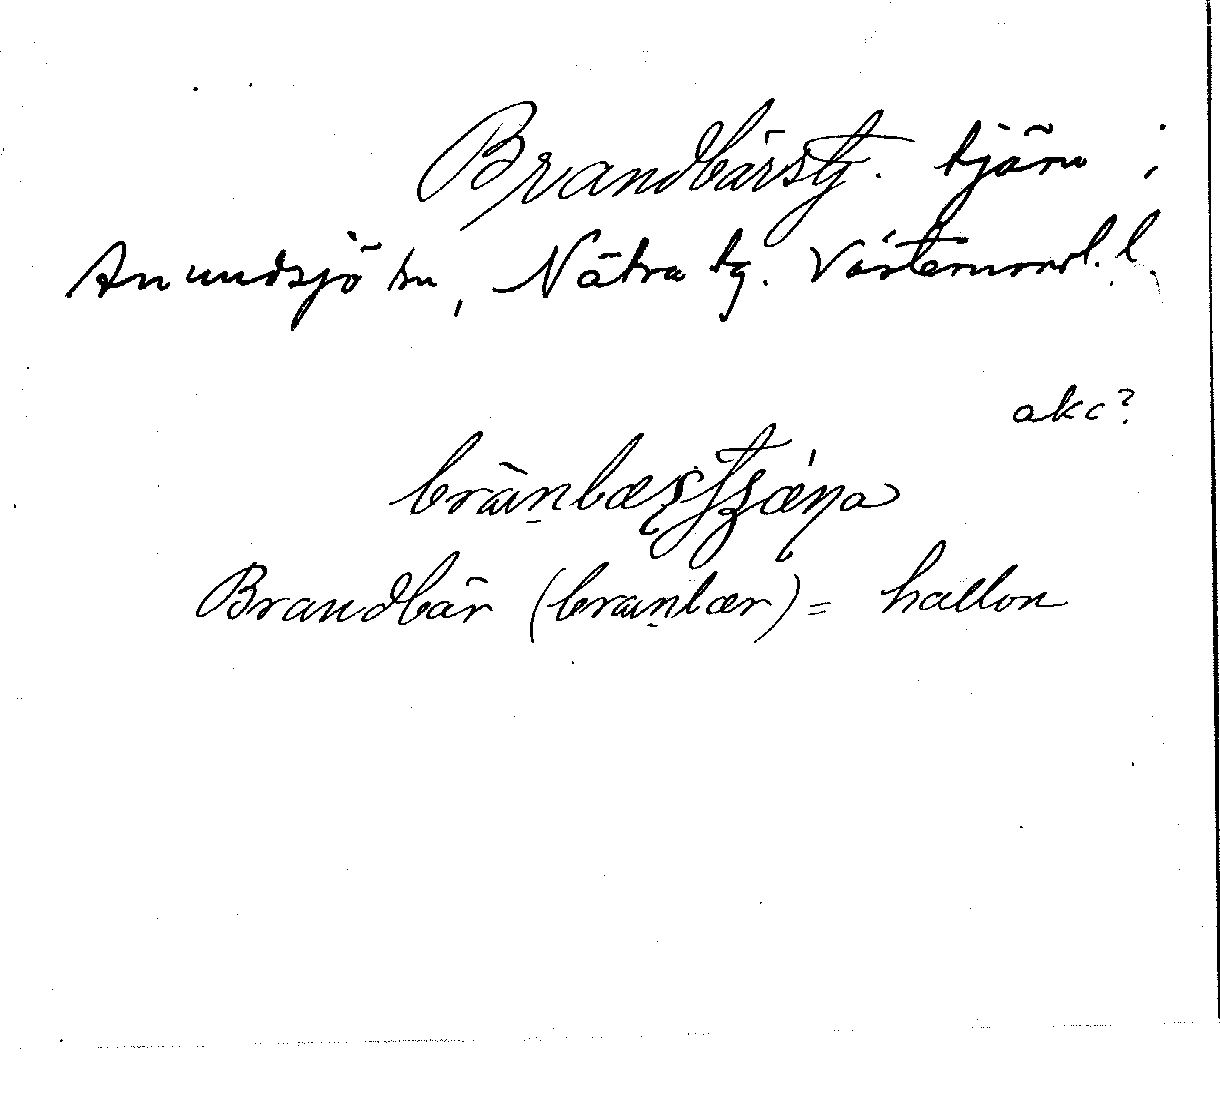 Brandbärstj. tjärn i
Anundsjö sn, Nätra tg. Västernorrl. l.
akc?
Brandbär (brambær) = hallon